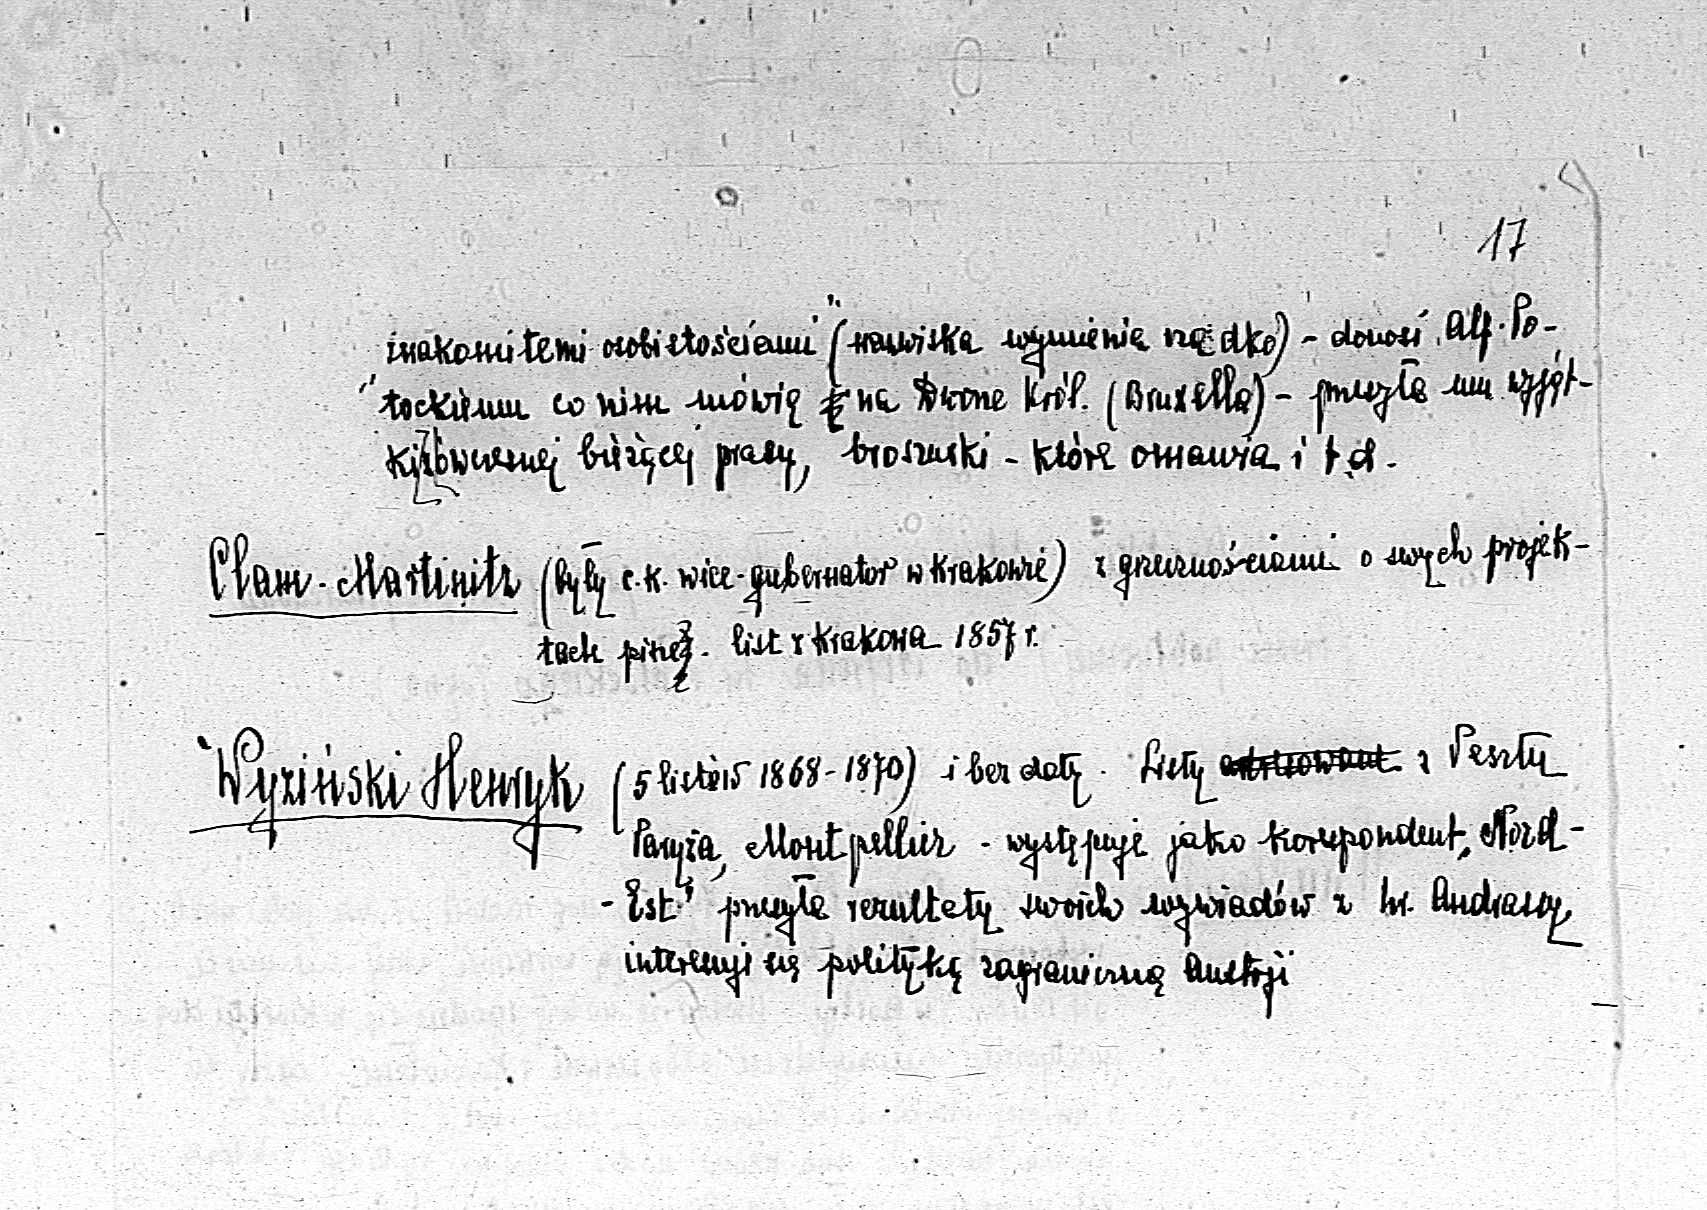 17
znakomitemi osobistościami" (nazwiska wymienia rzadko) - donosi Alf. Po-
tockiemu co o nim mówią na Dworze Król. (Bruxella) - przesyła mu wyjąt-
ki z ówczesnej bieżącej prasy, broszurki - które omawia i t.d.
Clam-Martinitz (były c.k. wice-gubernator w Krakowie) z grzecznościami o swych projek-
tach pisze. list z Krakowa 1857 r.
Wyziński Henryk (5 listów 1868-1870) i bez daty. Listy z Pesztu
Paryża, Montpellier - występuje jako korespondent „Nord-
-Est" przesyła rezultaty swoich wywiadów z hr. Andrassy,
interesuje się polityką zagraniczną Austrji